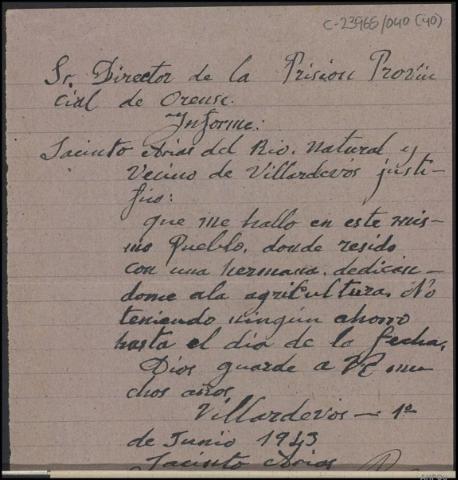 C-23965/040 (40)
Sr. Director de la Prision Provin
cial de Orense.
Informe:
Jacinto Arias del Rio, Natural y
Vecino de Villardevós justi-
fico:
que me hallo en este mis-
mo Pueblo, donde resido
con una hermana, dedican-
dome ala agricultura, No
teniendo ningún ahorro
hasta el dia de la fecha.
Dios guarde a V mu
chos años
Villardevos - 1º
de Junio 1943
Jacinto Arias